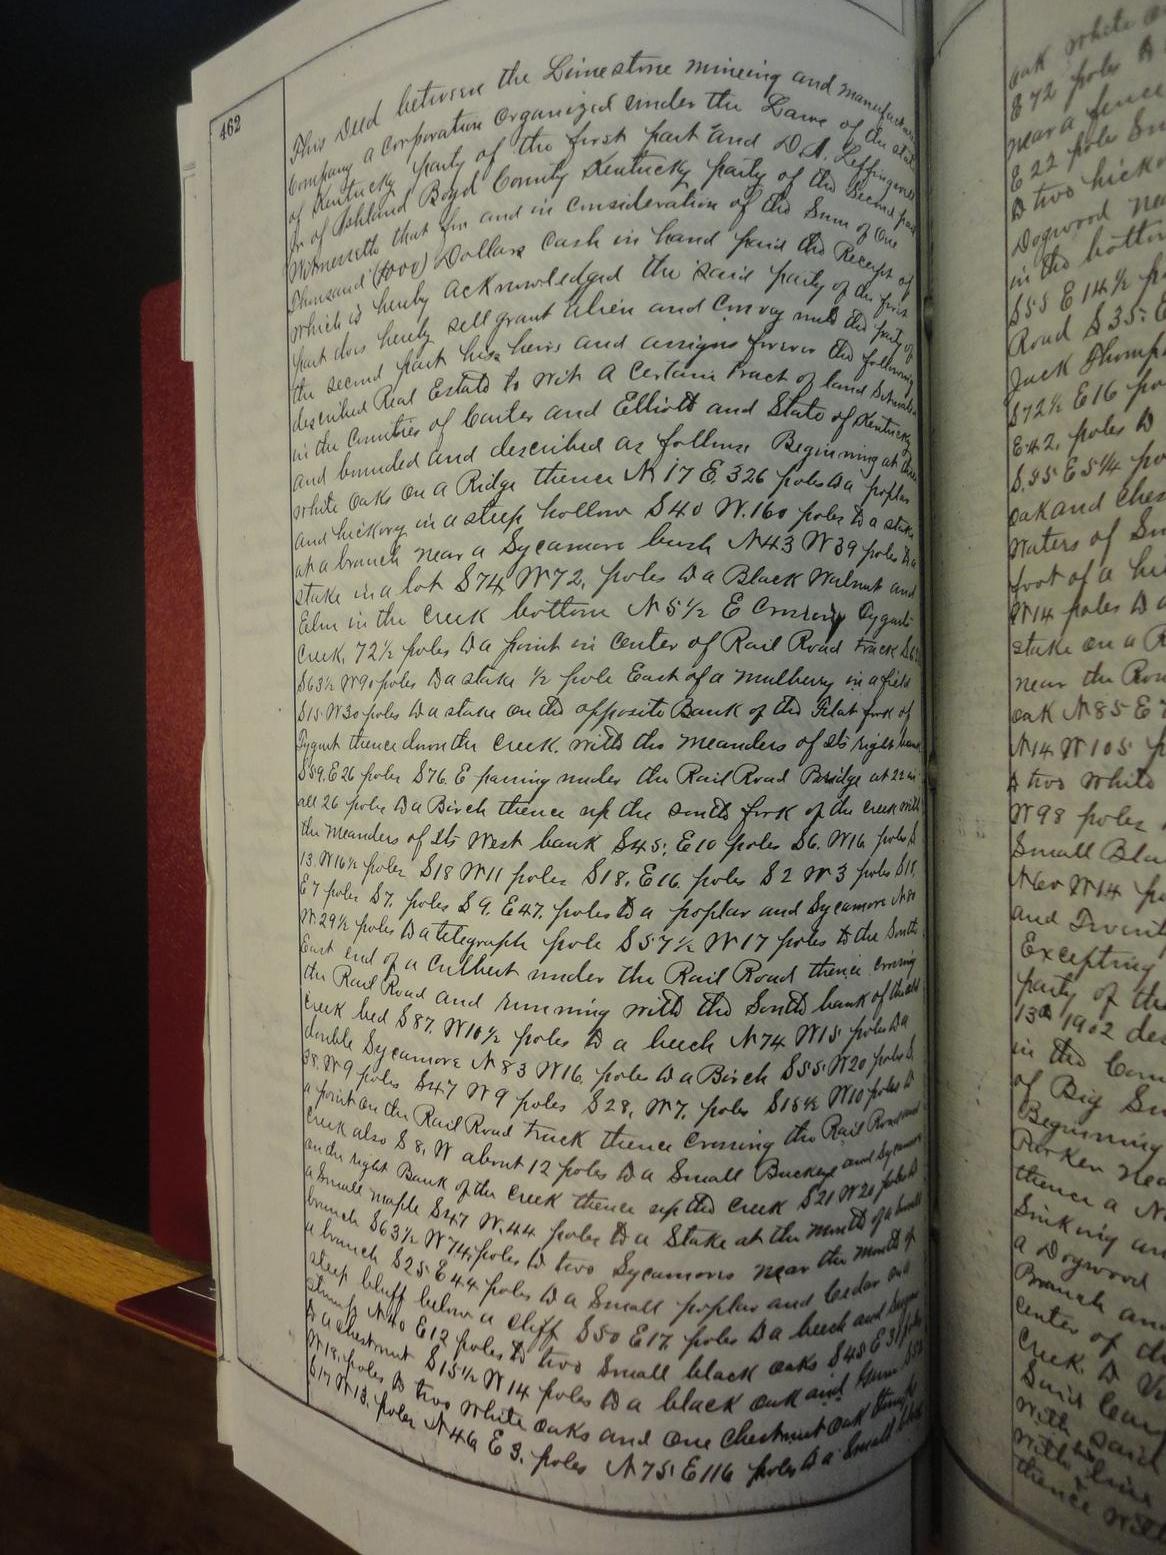 462
This Deed between the Limestone mineing and manufacture
Company, a Corporation Organized under the Laws of the state
of Kentucky party of the first part and D. A. Leffingwell
Jr of Ashland Boyd County Kentucky party of the Second part
Witnesseth that for and in consideration of the Sum of One
Thousand (1000) Dollars Cash in hand paid the Receipt of
which is hereby acknowledged the said party of the first
part does hereby sell grant Alien and Convey unto the party of
the second part his heirs and assigns forever the following
described Real Estate to wit A Certain tract of land Situated
in the Counties of Carter and Elliott and State of Kentucky
and bounded and described as follows Beginning at three
white oaks on a Ridge thence N 17 E. 326 poles to a poplar
and hickory in a steep hollow S 40 W. 160 poles to a stake
at a branch near a Sycamore bush N 43 W 39 poles to a
stake in a lot S 74 W 72, poles to a Black Walnut and
Elm in the creek bottom N 5 1/2 E Crossing Tygarts
Creek, 72 1/2 poles to a point in center of Rail Road track
S 63 1/2 W 90 poles to a stake 1/2 pole East of a mulberry in a field
S 15 W 30 poles to a stake on the opposite Bank of the Flat fork of
Tygart thence down the Creek with the meanders of its right bank
S 59, E 26 poles S 76. E passing under the Rail Road Bridge at 22 in
all 26 poles to a Birch thence up the south fork of the creek with
the meanders of its West bank S 45, E 10 poles S 6. W 16 poles S
13. W 16 1/2 poles S 18 W 11 poles S 18, E 16 poles S 2 W 3 poles S 15
E 7 poles S 7. poles S 9. E 47, poles to a poplar and Sycamore
W 29 1/2 poles to a telegraph pole S 57 1/2 W 17 poles to the South
East end of a Culbert under the Rail Road thence crossing
the Rail Road and running with the South bank of the old
Creek bed S 87. W 10 1/2 poles to a beech N 74 W 15 poles to a
double Sycamore N 83 W 16. poles to a Birch S 55 W 20 poles S.
38. W 9 poles S 47 W 9 poles S 28, W 7, poles S 15 1/2 W 10 poles to
a point on the Rail Road track thence Crossing the Rail Road and
Creek also S 8. W about 12 poles to a Small Buckeye and Sycamore
on the right Bank of the Creek thence up the Creek S 21 W 20 poles to
a Small maple S 47 W. 44 poles to a Stake at the mouth of a small
branch S 63 1/2 W 74, poles to two Sycamores near the mouth of
a branch S 25 E 44 poles to a Small poplar and Cedar on a
steep bluff below a Cliff S 50 E 17 poles to a beech and
stump N 40 E 12 poles to two Small black oaks S 48 E 31 poles
to a Chestnut S 15 1/2 W 14 poles to a black oak and Gum
W 18, poles to two White oaks and one Chestnut oak
S 17 W 13, poles N 46 E 3. poles N 75 E 116 poles to a Small black
oak white
E 72 poles to
near a fence
E 22 poles
to two hick
Dogwood
in the bottom
S 55 E 14 1/2
Road S 35. E
Jack Thomp
S 72 1/2 E 16 po
E 42, poles to
S. 35 E 5 1/4 po
oak and ches
Waters of
foot of a
W 14 poles to a
stake on a R
near the
oak N 85 E
N 14 W 105 p
to two White
W 98 poles
Small Bla
N 60 W 14 po
and
Excepting
party of the
13th 1902 de
in the Coun
of Big
Beginning
Parker nea
thence a N
Sinking an
a Dogwood
Branch and
center of
Creek. to
Said
with said
with line
thence with